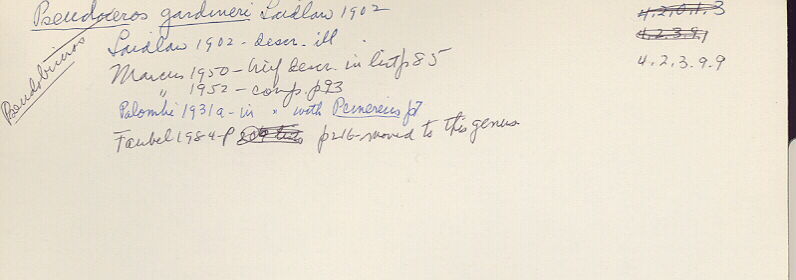 Pseudoceros gardineri Laidlaw 1902
4.2.0.1.3
Pseudobiceros
Laidlaw 1902 - descr. ill.
4.2.3.9.1
Marcus 1950 - brief descr. in list p 85
4.2.3.9.9
" 1952 - comp. p93
Palombi 1931a - in " with P cinereus p7
Faubel 1984 - P p216 - moved to this genus